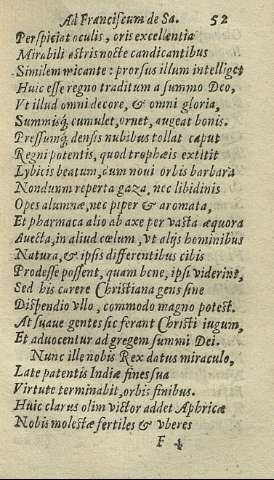 Ad Franciscum de Sa. 52
Perspiciat oculis, oris excellentia
Mirabili astris nocte candicantibus
Similem micante: prorsus illum intelliget
Huic esse regno traditum a summo Deo,
Vt illud omni decore, & omni gloria,
Summisq́; cumulet, ornet, augeat bonis.
Pressumq́; densis nubibus tollat caput
Regni potentis, quod trophæis extitit
Lybicis beatum, cum noui orbis barbara
Nondum reperta gaza, nec libidinis
Opes alumnæ, nec piper & aromata,
Et pharmaca alio ab axe per vasta æquora
Auecta, in aliud cœlum, vt alijs hominibus
Natura, & ipsis differentibus cibis
Prodesse possent, quam bene, ipsi viderint,
Sed his carere Christiana gens sine
Dispendio vllo, commodo magno potest.
At suaue gentes sic ferant Christi iugum,
Et aduocentur ad gregem summi Dei.
Nunc ille nobis Rex datus miraculo,
Late patentis Indiæ fines sua
Virtute terminabit, orbis finibus.
Huic clarus olim victor addet Aphricæ
Nobis molestæ fertiles & vberes
F 4